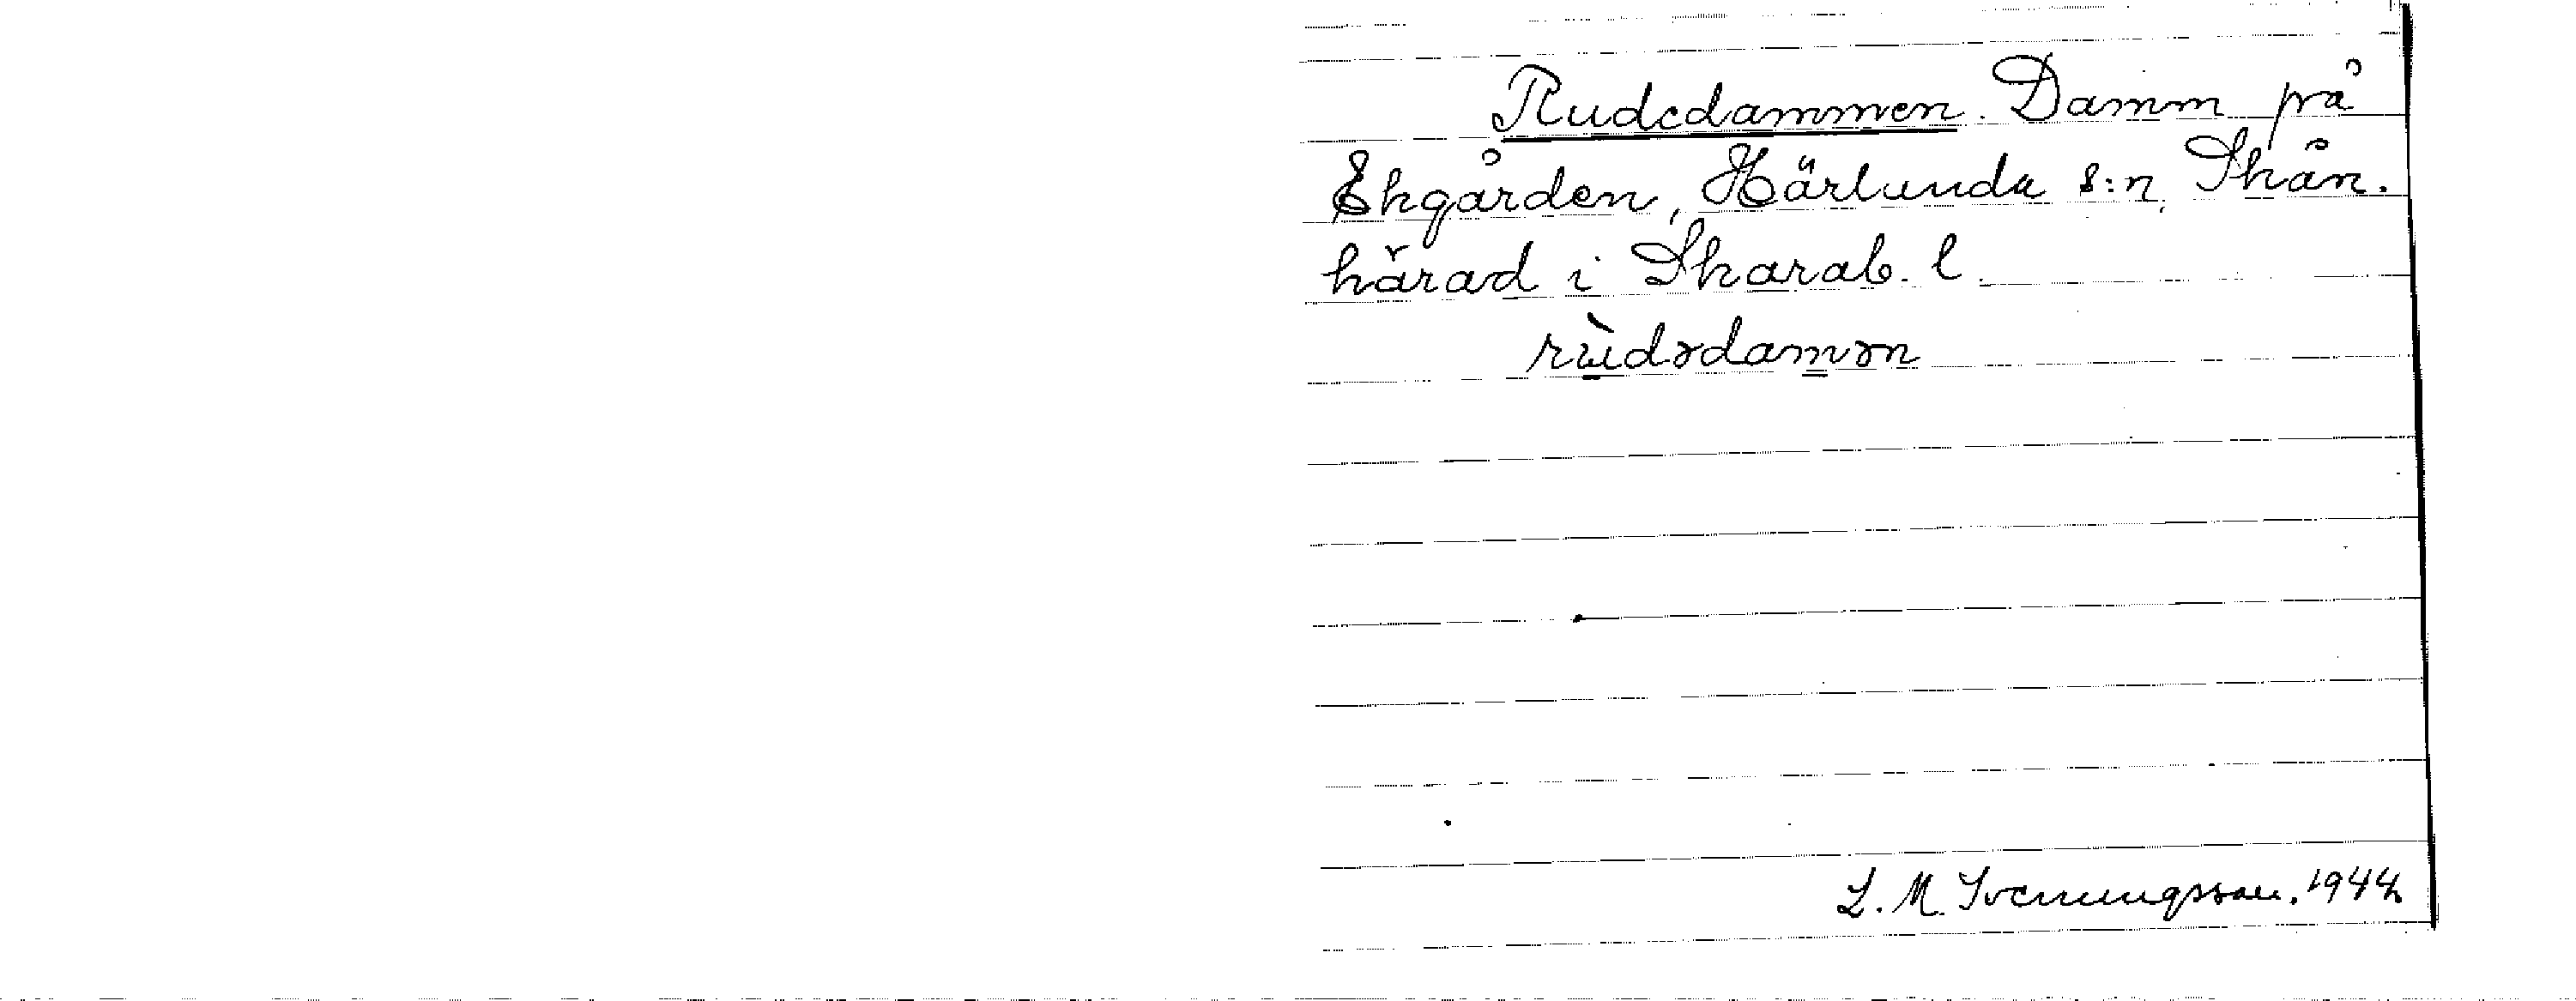 Rudedammen. Damm på
Ekgården, Härlunda s:n, Skån.
härad i Skarab. l.
rùdədamən
L. M. Svenungsson. 1944